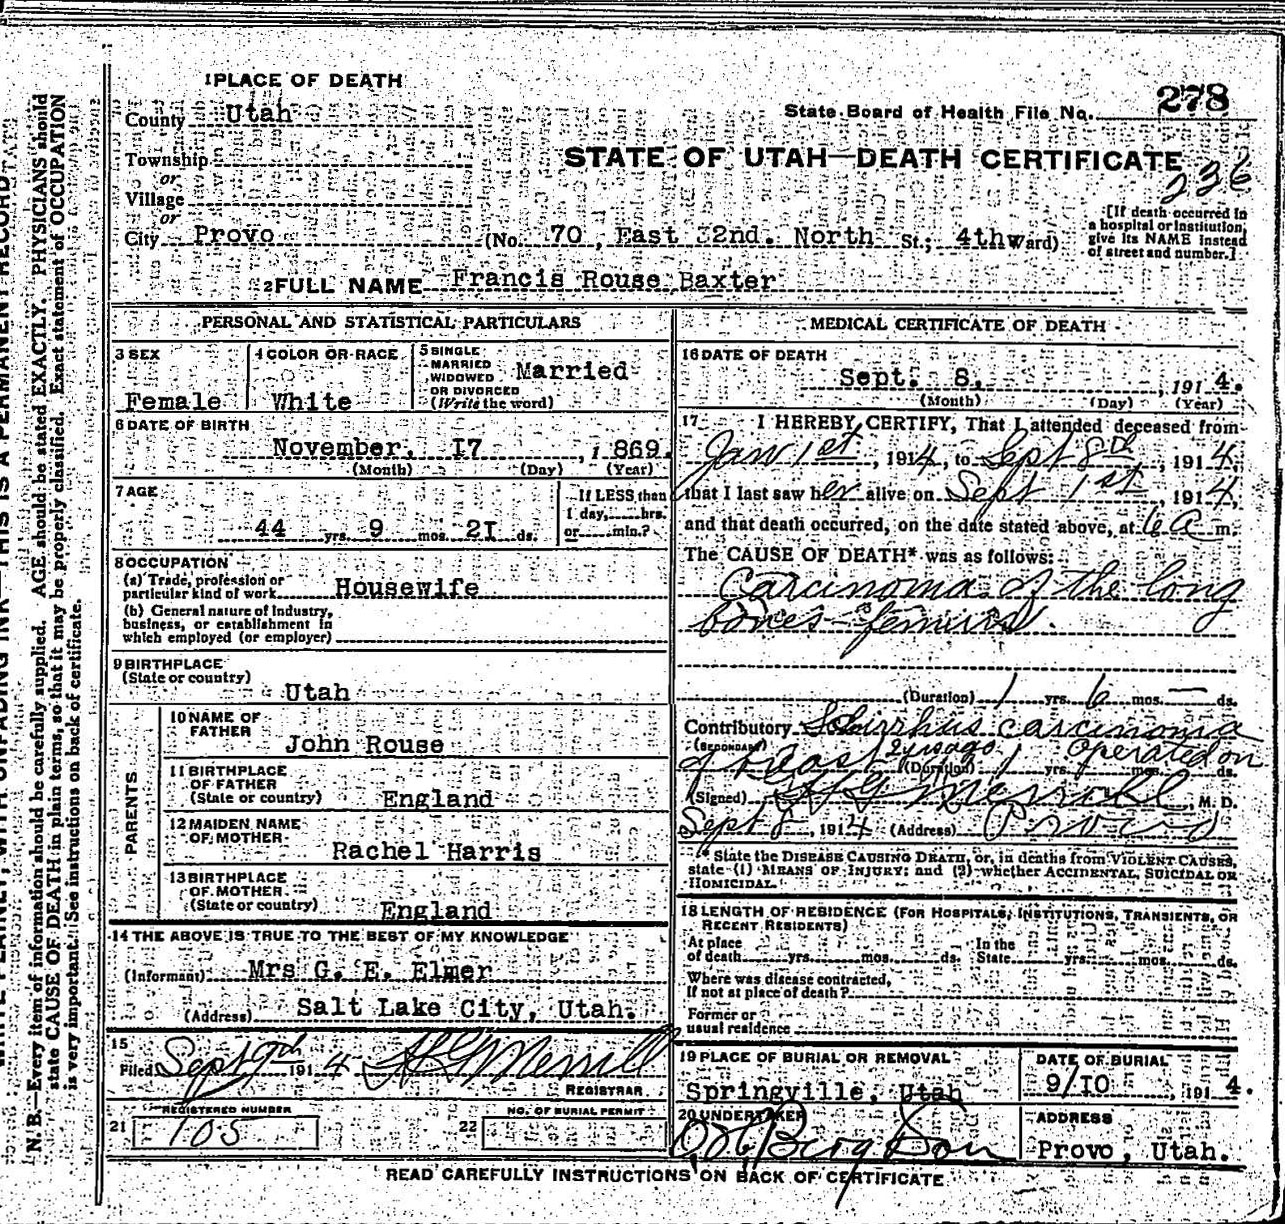 1 PLACE OF DEATH
County Utah
State Board of Health File No. 278
Township
or
STATE OF UTAH—DEATH CERTIFICATE
236
Village
or
City Provo (No. 70, East 2nd. North St.; 4th Ward)
[If death occurred in
a hospital or institution,
give its NAME instead
of street and number.]
2 FULL NAME Francis Rouse Baxter
PERSONAL AND STATISTICAL PARTICULARS
3 SEX
Female
4 COLOR OR RACE
White
5 SINGLE
MARRIED
WIDOWED
OR DIVORCED
(Write the word)
Married
6 DATE OF BIRTH
November, 17, 1869.
(Month) (Day) (Year)
7 AGE
44 yrs. 9 mos. 21 ds.
If LESS than
1 day, hrs.
or min.?
8 OCCUPATION
(a) Trade, profession or
particular kind of work Housewife
(b) General nature of industry,
business, or establishment in
which employed (or employer)
9 BIRTHPLACE
(State or country)
Utah
PARENTS
10 NAME OF
FATHER
John Rouse
11 BIRTHPLACE
OF FATHER
(State or country) England
12 MAIDEN NAME
OF MOTHER
Rachel Harris
13 BIRTHPLACE
OF MOTHER
(State or country) England
14 THE ABOVE IS TRUE TO THE BEST OF MY KNOWLEDGE
(Informant) Mrs G. E. Elmer
(Address) Salt Lake City, Utah.
15
Filed Sept 9th 1914 H G Merrill
REGISTRAR
REGISTERED NUMBER
21 105
NO. OF BURIAL PERMIT
22
MEDICAL CERTIFICATE OF DEATH
16 DATE OF DEATH
Sept. 8, 1914.
(Month) (Day) (Year)
17 I HEREBY CERTIFY, That I attended deceased from
Jan 1st, 1914, to Sept 8th, 1914,
that I last saw her alive on Sept 1st, 1914,
and that death occurred, on the date stated above, at 6 a m.
The CAUSE OF DEATH* was as follows:
Carcinoma of the long
bones-femurs.
(Duration) 1 yrs. 6 mos. — ds.
Contributory Schirrhus carcinoma
(SECONDARY)
of breast 2 yrs ago Operated on
(Duration) 1 yrs. mos. ds.
(Signed) H G Merrill M. D.
Sept 8, 1914 (Address) Provo
* State the DISEASE CAUSING DEATH, or, in deaths from VIOLENT CAUSES,
state (1) MEANS OF INJURY; and (2) whether ACCIDENTAL, SUICIDAL OR
HOMICIDAL.
18 LENGTH OF RESIDENCE (FOR HOSPITALS, INSTITUTIONS, TRANSIENTS, OR
RECENT RESIDENTS)
At place
of death yrs. mos. ds.
In the
State yrs. mos. ds.
Where was disease contracted,
If not at place of death?
Former or
usual residence
19 PLACE OF BURIAL OR REMOVAL
Springville, Utah
DATE OF BURIAL
9/10, 1914.
20 UNDERTAKER
Berg & Son
ADDRESS
Provo, Utah.
READ CAREFULLY INSTRUCTIONS ON BACK OF CERTIFICATE
N. B.—Every item of information should be carefully supplied. AGE should be stated EXACTLY. PHYSICIANS should
state CAUSE OF DEATH in plain terms, so that it may be properly classified. Exact statement of OCCUPATION
is very important. See instructions on back of certificate.